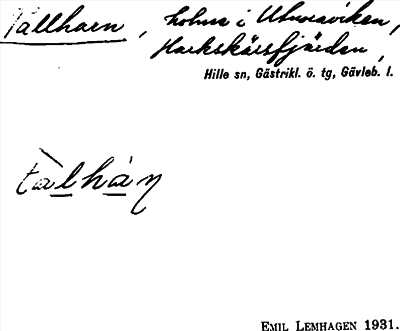 Tallharn, holme i Utnoraviken,
Harkskärsfjärden,
Hille sn, Gästrikl. ö. tg, Gävleb. l.
EMIL LEMHAGEN 1931.